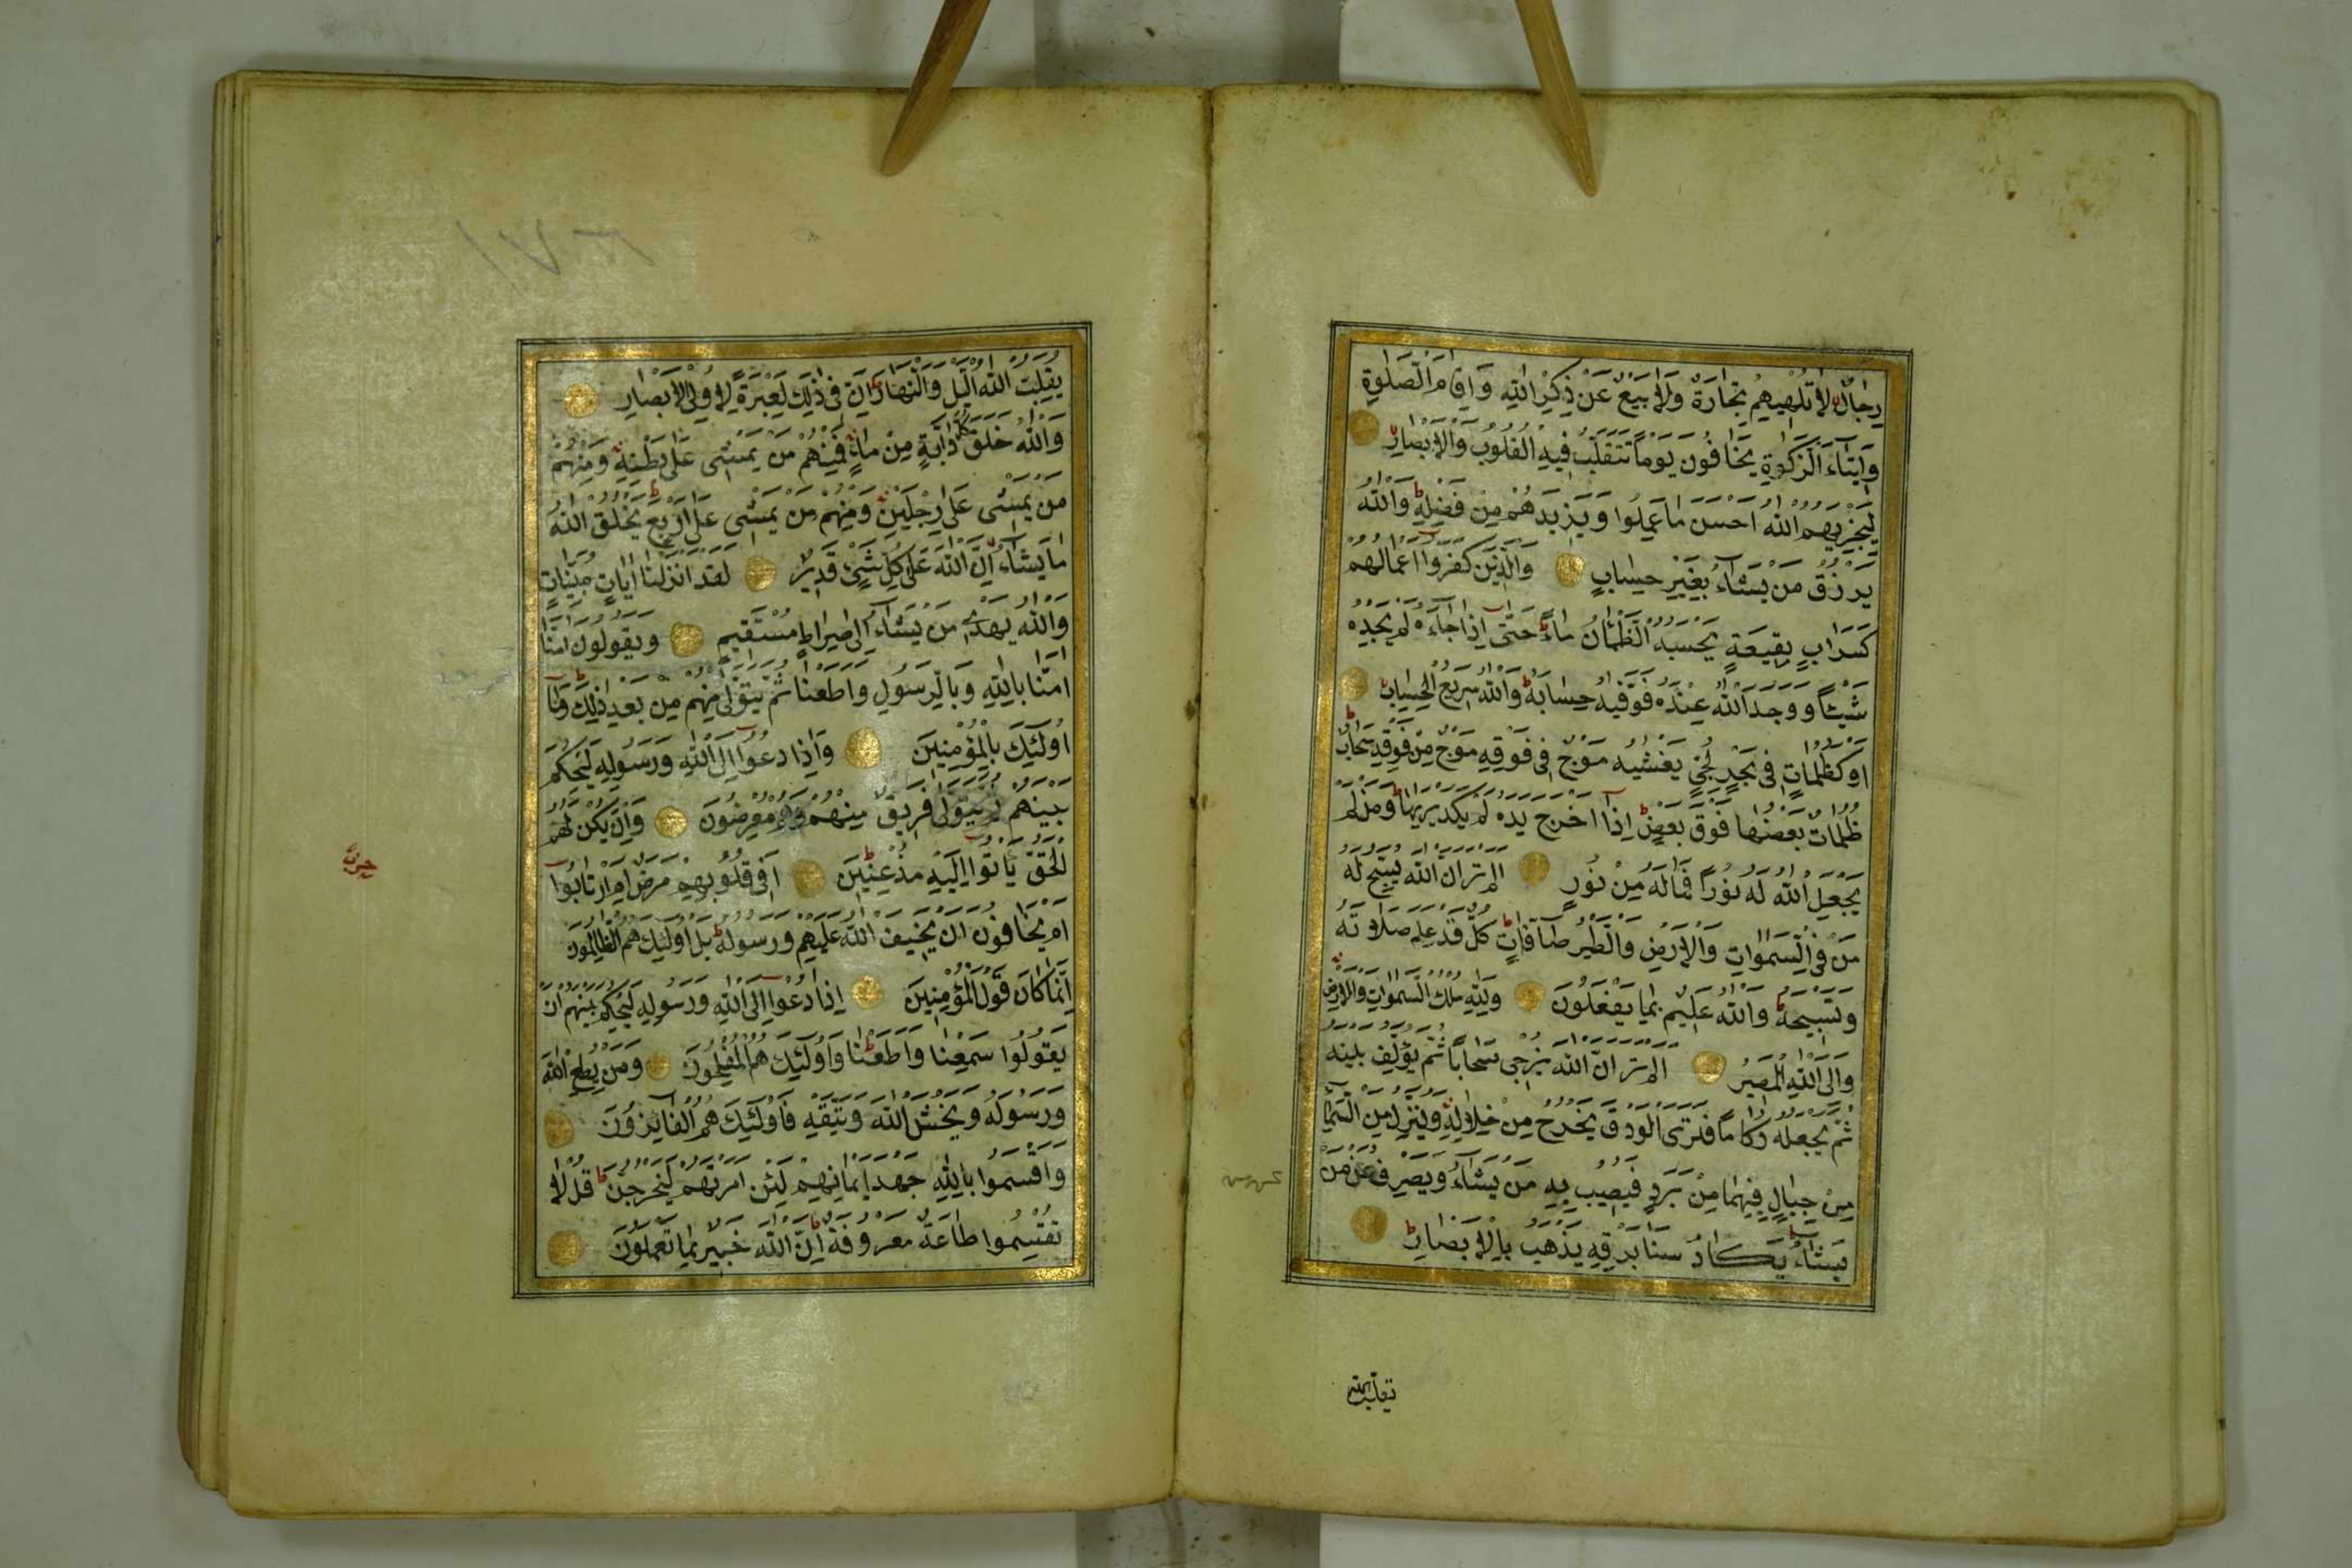 رِجَالٌ لَا تُلْهِيهِمْ تِجَارَةٌ وَلَا بَيْعٌ عَنْ ذِكْرِ اللَّهِ وَاِقَامِ الصَّلٰوةِ
وَاِيتَاءِ الزَّكٰوةِ يَخَافُونَ يَوْمًا تَتَقَلَّبُ فِيهِ الْقُلُوبُ وَالْاَبْصَارُ
لِيَجْزِيَهُمُ اللَّهُ اَحْسَنَ مَا عَمِلُوا وَيَزِيدَهُمْ مِنْ فَضْلِهِ وَاللَّهُ
يَرْزُقُ مَنْ يَشَاءُ بِغَيْرِ حِسَابٍ وَالَّذِينَ كَفَرُوا اَعْمَالُهُمْ
كَسَرَابٍ بِقِيعَةٍ يَحْسَبُهُ الظَّمْاٰنُ مَاءً حَتّٰى اِذَا جَاءَهُ لَمْ يَجِدْهُ
شَيْئًا وَوَجَدَ اللَّهَ عِنْدَهُ فَوَفّٰيهُ حِسَابَهُ وَاللَّهُ سَرِيعُ الْحِسَابِ
اَوْ كَظُلُمَاتٍ فِى بَحْرٍ لُجِّيٍّ يَغْشٰيهُ مَوْجٌ فِى فَوْقِهِ مَوْجٌ مِنْ فَوْقِهِ سَحَابٌ
ظُلُمَاتٌ بَعْضُهَا فَوْقَ بَعْضٍ اِذَا اَخْرَجَ يَدَهُ لَمْ يَكَدْ يَرٰيهَا وَمَنْ لَمْ
يَجْعَلِ اللَّهُ لَهُ نُورًا فَمَا لَهُ مِنْ نُورٍ اَلَمْ تَرَ اَنَّ اللَّهَ يُسَبِّحُ لَهُ
مَنْ فِى السَّمٰوَاتِ وَالْاَرْضِ وَالطَّيْرُ صَافَّاتٍ كُلٌّ قَدْ عَلِمَ صَلَاتَهُ
وَتَسْبِيحَهُ وَاللَّهُ عَلِيمٌ بِمَا يَفْعَلُونَ وَلِلَّهِ مُلْكُ السَّمٰوَاتِ وَالْاَرْضِ
وَاِلَى اللَّهِ الْمَصِيرُ اَلَمْ تَرَ اَنَّ اللَّهَ يُزْجِى سَحَابًا ثُمَّ يُؤَلِّفُ بَيْنَهُ
ثُمَّ يَجْعَلُهُ رُكَامًا فَتَرَى الْوَدْقَ يَخْرُجُ مِنْ خِلَالِهِ وَيُنَزِّلُ مِنَ السَّمَاءِ
مِنْ جِبَالٍ فِيهَا مِنْ بَرَدٍ فَيُصِيبُ بِهِ مَنْ يَشَاءُ وَيَصْرِفُهُ عَنْ مَنْ
يَشَاءُ يَكَادُ سَنَا بَرْقِهِ يَذْهَبُ بِالْاَبْصَارِ
يُقَلِّبُ اللَّهُ الَّيْلَ وَالنَّهَارَ اِنَّ فِى ذٰلِكَ لَعِبْرَةً لِاُولِى الْاَبْصَارِ
وَاللَّهُ خَلَقَ كُلَّ دَابَّةٍ مِنْ مَاءٍ فَمِنْهُمْ مَنْ يَمْشِى عَلٰى بَطْنِهِ وَمِنْهُمْ
مَنْ يَمْشِى عَلٰى رِجْلَيْنِ وَمِنْهُمْ مَنْ يَمْشِى عَلٰى اَرْبَعٍ يَخْلُقُ اللَّهُ
مَا يَشَاءُ اِنَّ اللَّهَ عَلٰى كُلِّ شَيْءٍ قَدِيرٌ لَقَدْ اَنْزَلْنَا اٰيَاتٍ مُبَيِّنَاتٍ
وَاللَّهُ يَهْدِى مَنْ يَشَاءُ اِلٰى صِرَاطٍ مُسْتَقِيمٍ وَيَقُولُونَ اٰمَنَّا
اٰمَنَّا بِاللَّهِ وَبِالرَّسُولِ وَاَطَعْنَا ثُمَّ يَتَوَلّٰى مِنْهُمْ مِنْ بَعْدِ ذٰلِكَ وَمَا
اُولٰئِكَ بِالْمُؤْمِنِينَ وَاِذَا دُعُوا اِلَى اللَّهِ وَرَسُولِهِ لِيَحْكُمَ
بَيْنَهُمْ يَتَوَلّٰى فَرِيقٌ مِنْهُمْ وَهُمْ مُعْرِضُونَ وَاِنْ يَكُنْ لَهُمُ
الْحَقُّ يَاْتُوا اِلَيْهِ مُذْعِنِينَ اَفِى قُلُوبِهِمْ مَرَضٌ اَمِ ارْتَابُوا
اَمْ يَخَافُونَ اَنْ يَحِيفَ اللَّهُ عَلَيْهِمْ وَرَسُولُهُ بَلْ اُولٰئِكَ هُمُ الظَّالِمُونَ
اِنَّمَا كَانَ قَوْلَ الْمُؤْمِنِينَ اِذَا دُعُوا اِلَى اللَّهِ وَرَسُولِهِ لِيَحْكُمَ بَيْنَهُمْ اَنْ
يَقُولُوا سَمِعْنَا وَاَطَعْنَا وَاُولٰئِكَ هُمُ الْمُفْلِحُونَ وَمَنْ يُطِعِ اللَّهَ
وَرَسُولَهُ وَيَخْشَ اللَّهَ وَيَتَّقْهِ فَاُولٰئِكَ هُمُ الْفَائِزُونَ
وَاَقْسَمُوا بِاللَّهِ جَهْدَ اَيْمَانِهِمْ لَئِنْ اَمَرْتَهُمْ لَيَخْرُجُنَّ قُلْ لَا
تُقْسِمُوا طَاعَةٌ مَعْرُوفَةٌ اِنَّ اللَّهَ خَبِيرٌ بِمَا تَعْمَلُونَ
حزب